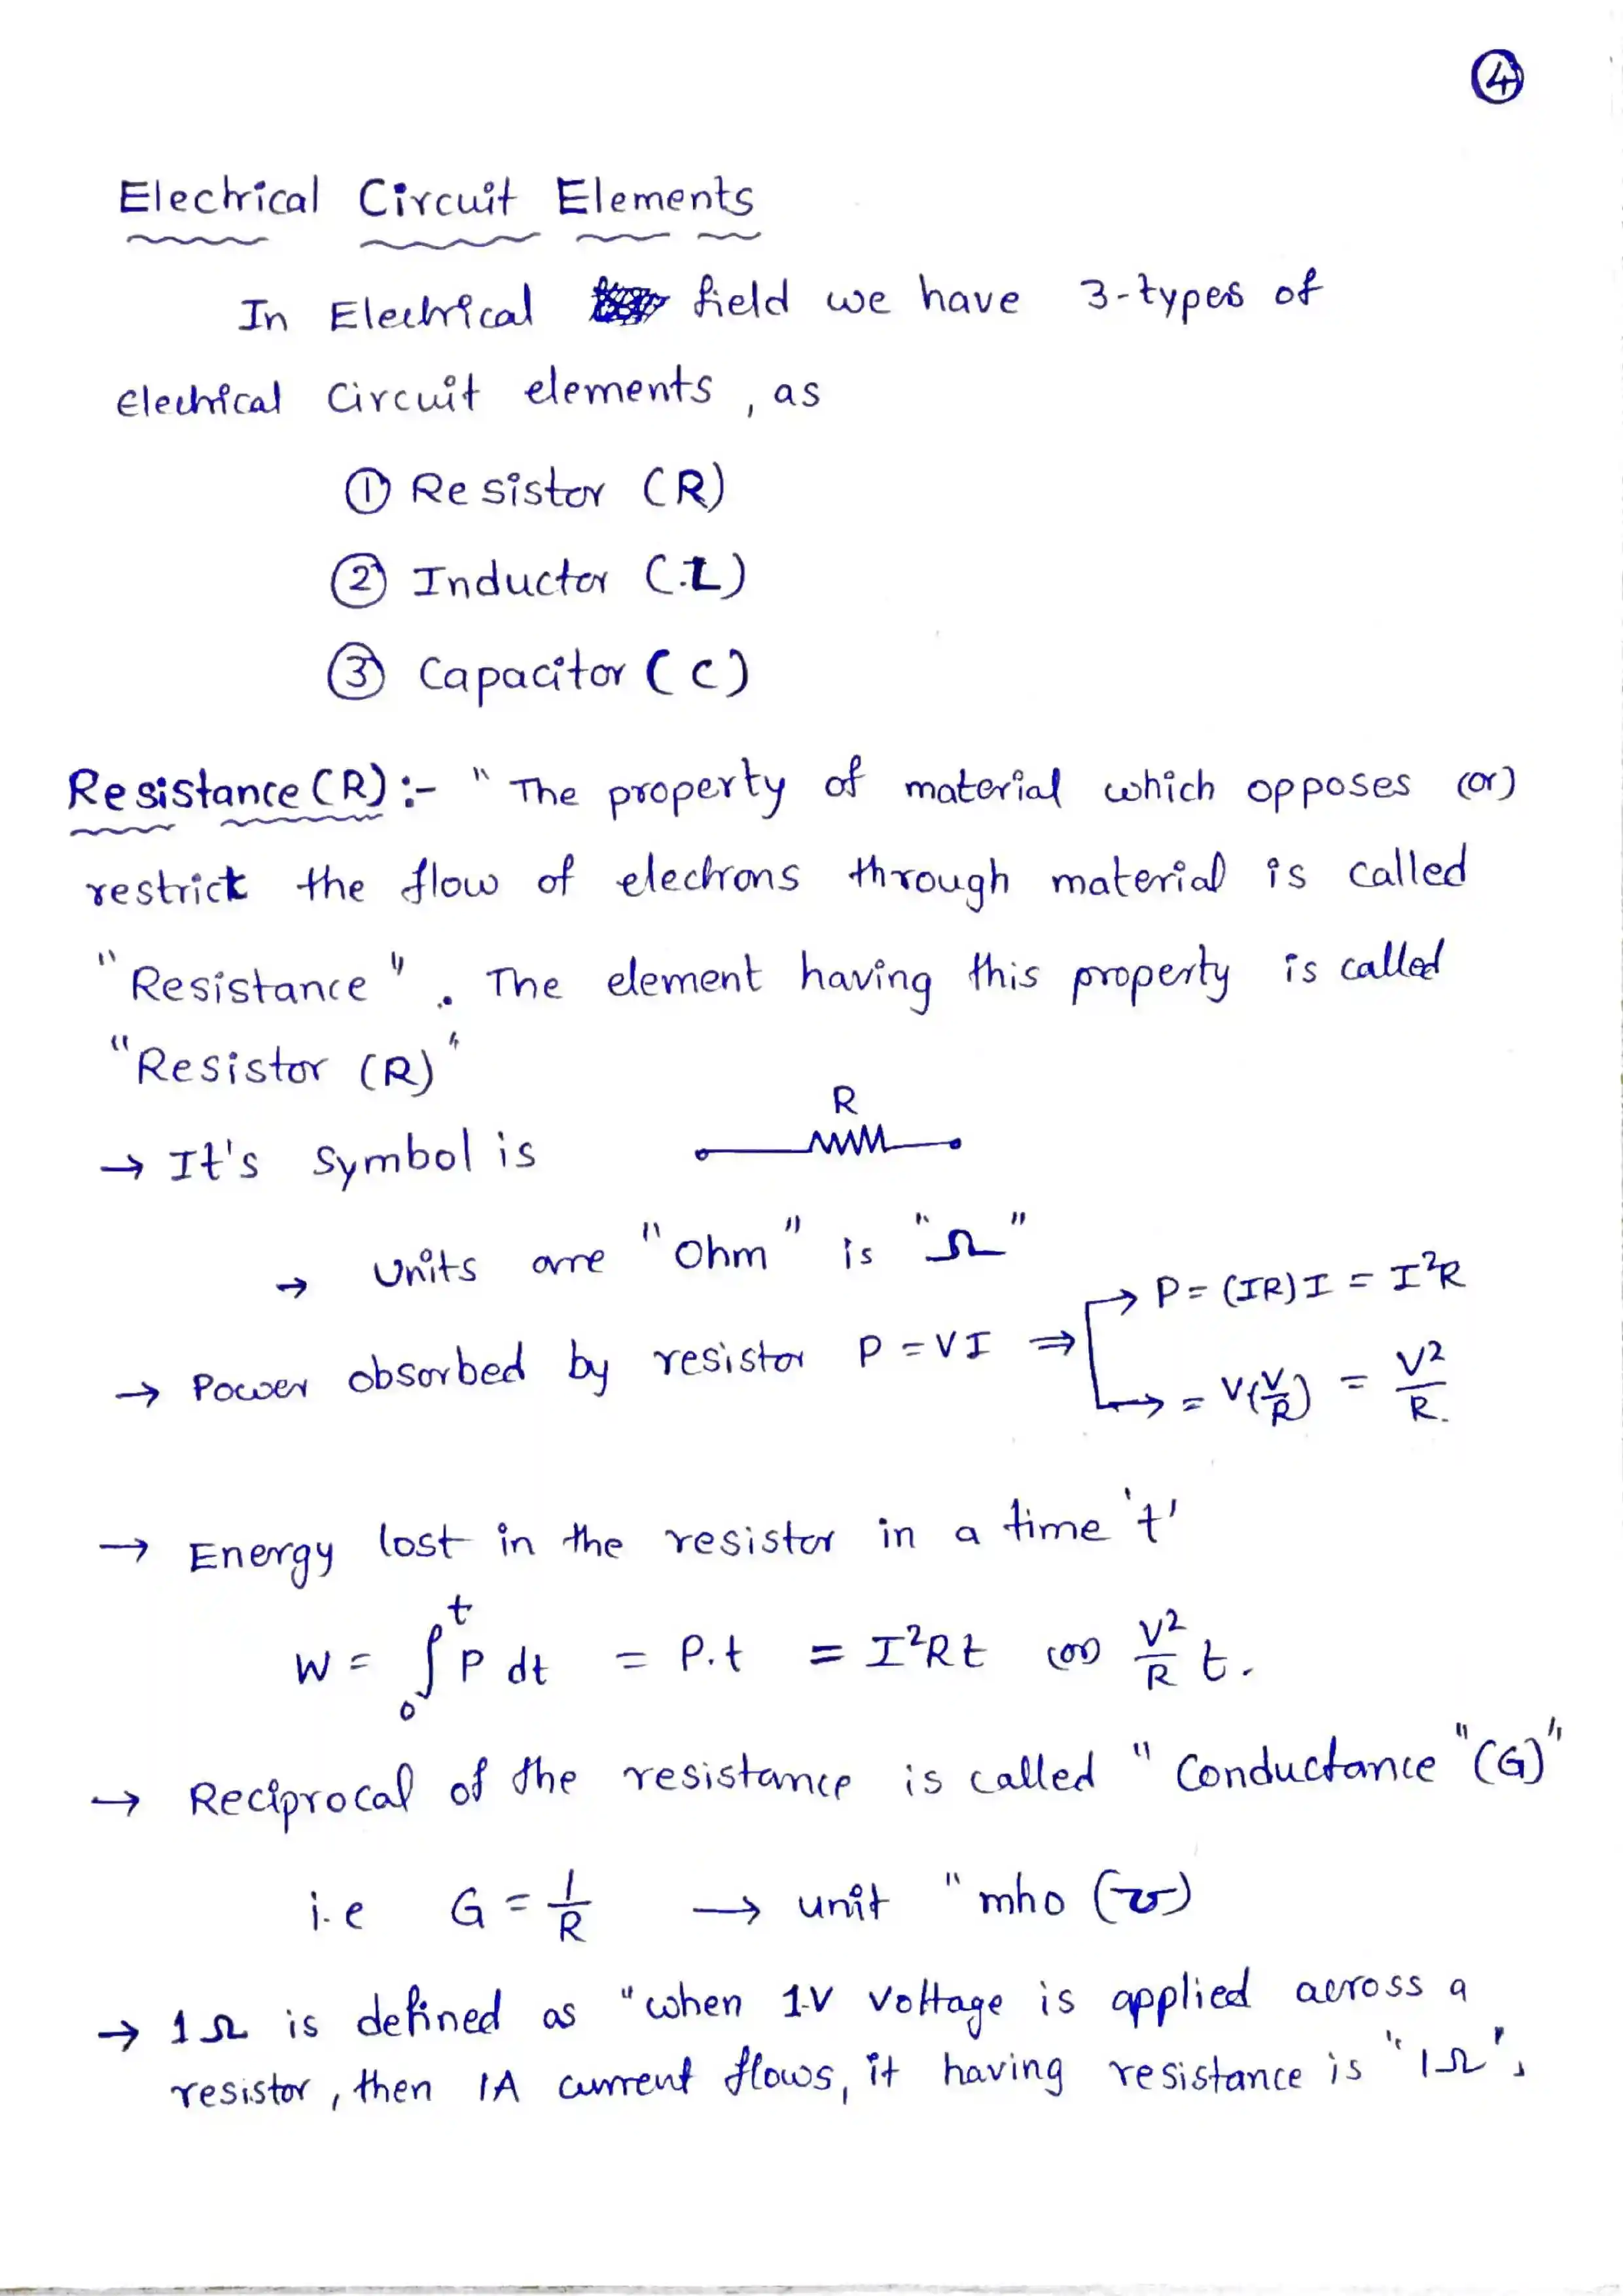 4
Electrical Circuit Elements
In Electrical field we have 3-types of
Electrical Circuit elements, as
① Resistor (R)
② Inductor (L)
③ Capacitor (C)
Resistance (R) :- " The property of material which opposes (or)
restrict the flow of electrons through material is called
"Resistance". The element having this property is called
"Resistor (R)"
R
→ It's symbol is
→ Units are "Ohm" is "Ω"
→ Power absorbed by resistor P = VI ⇒ → P = (IR) I = I²R
→ = V(V/R) = V²/R.
→ Energy lost in the resistor in a time 't'
W = ∫₀ᵗ P dt = P.t = I²Rt (or) V²/R t.
→ Reciprocal of the resistance is called " Conductance "(G)"
i.e G = 1/R → unit " mho (℧)
→ 1Ω is defined as "when 1V voltage is applied across a
resistor, then 1A current flows, it having resistance is "1Ω".